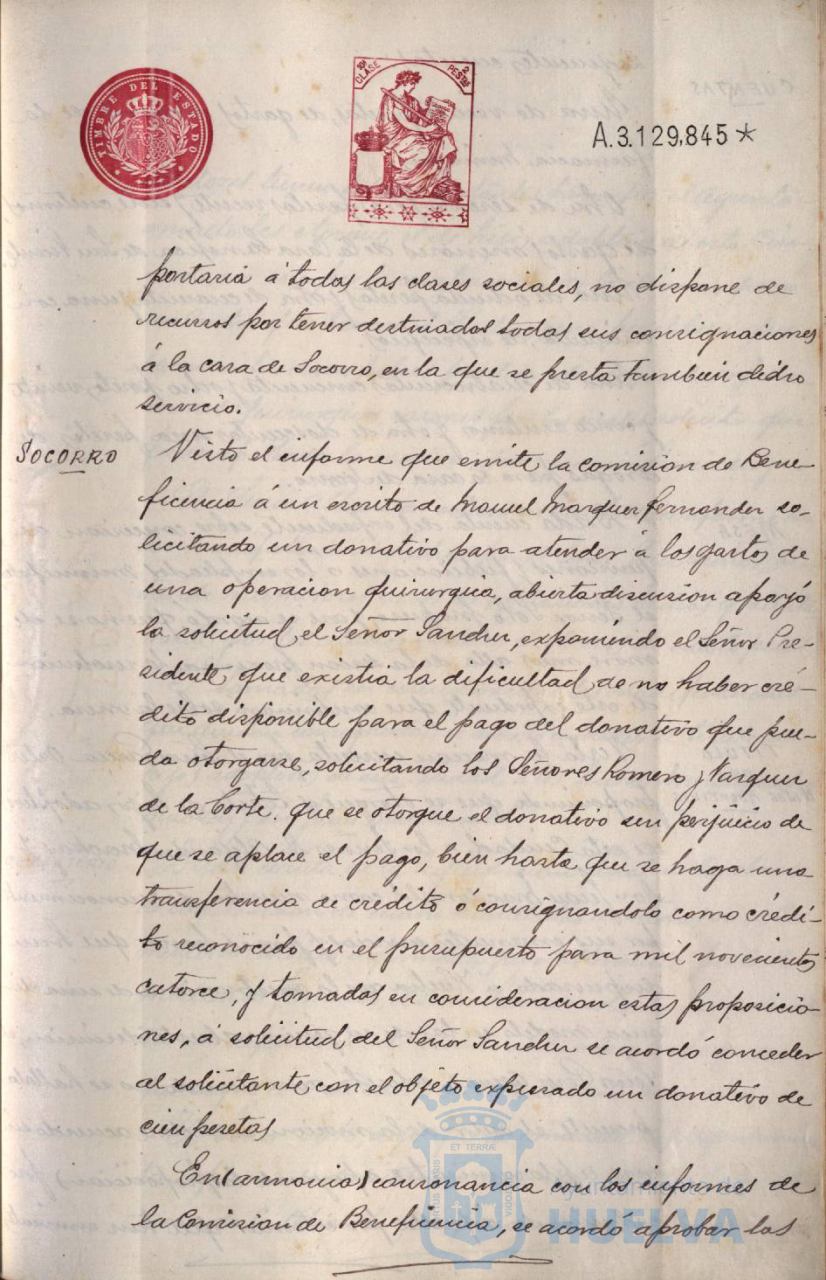 TIMBRE DEL ESTADO
10ª CLASE 2 PESTAS
A.3.129,845*
portaria á todas las clases sociales, no dispone de
recursos por tener destinados todas sus consignaciones
á la casa de Socorro, en la que se presta tambien dicho
servicio.
SOCORRO
Visto el informe que emite la comision de Bene-
ficencia á un escrito de Manuel Marquez Fernandez so-
licitando un donativo para atender á los gastos de
una operacion quirurgica, abierta discusion apoyó
la solicitud el Señor Sanchez, exponiendo el Señor Pre-
sidente que existia la dificultad de no haber cré-
dito disponible para el pago del donativo que pue-
da otorgarse, solicitando los Señores Romero y Vazquez
de la Corte. que se otorgue el donativo sin perjuicio de
que se aplace el pago, bien hasta que se haga una
transferencia de crédito ó consignandolo como crédi-
to reconocido en el presupuesto para mil novecientos
catorce, y tomadas en consideracion estas proposicio-
nes, á solicitud del Señor Sanchez se acordó conceder
al solicitante con el objeto expresado un donativo de
cien pesetas
En (armonia) consonancia con los informes de
la Comision de Beneficencia, se acordó aprobar las
ET TERRÆ
HUELVA